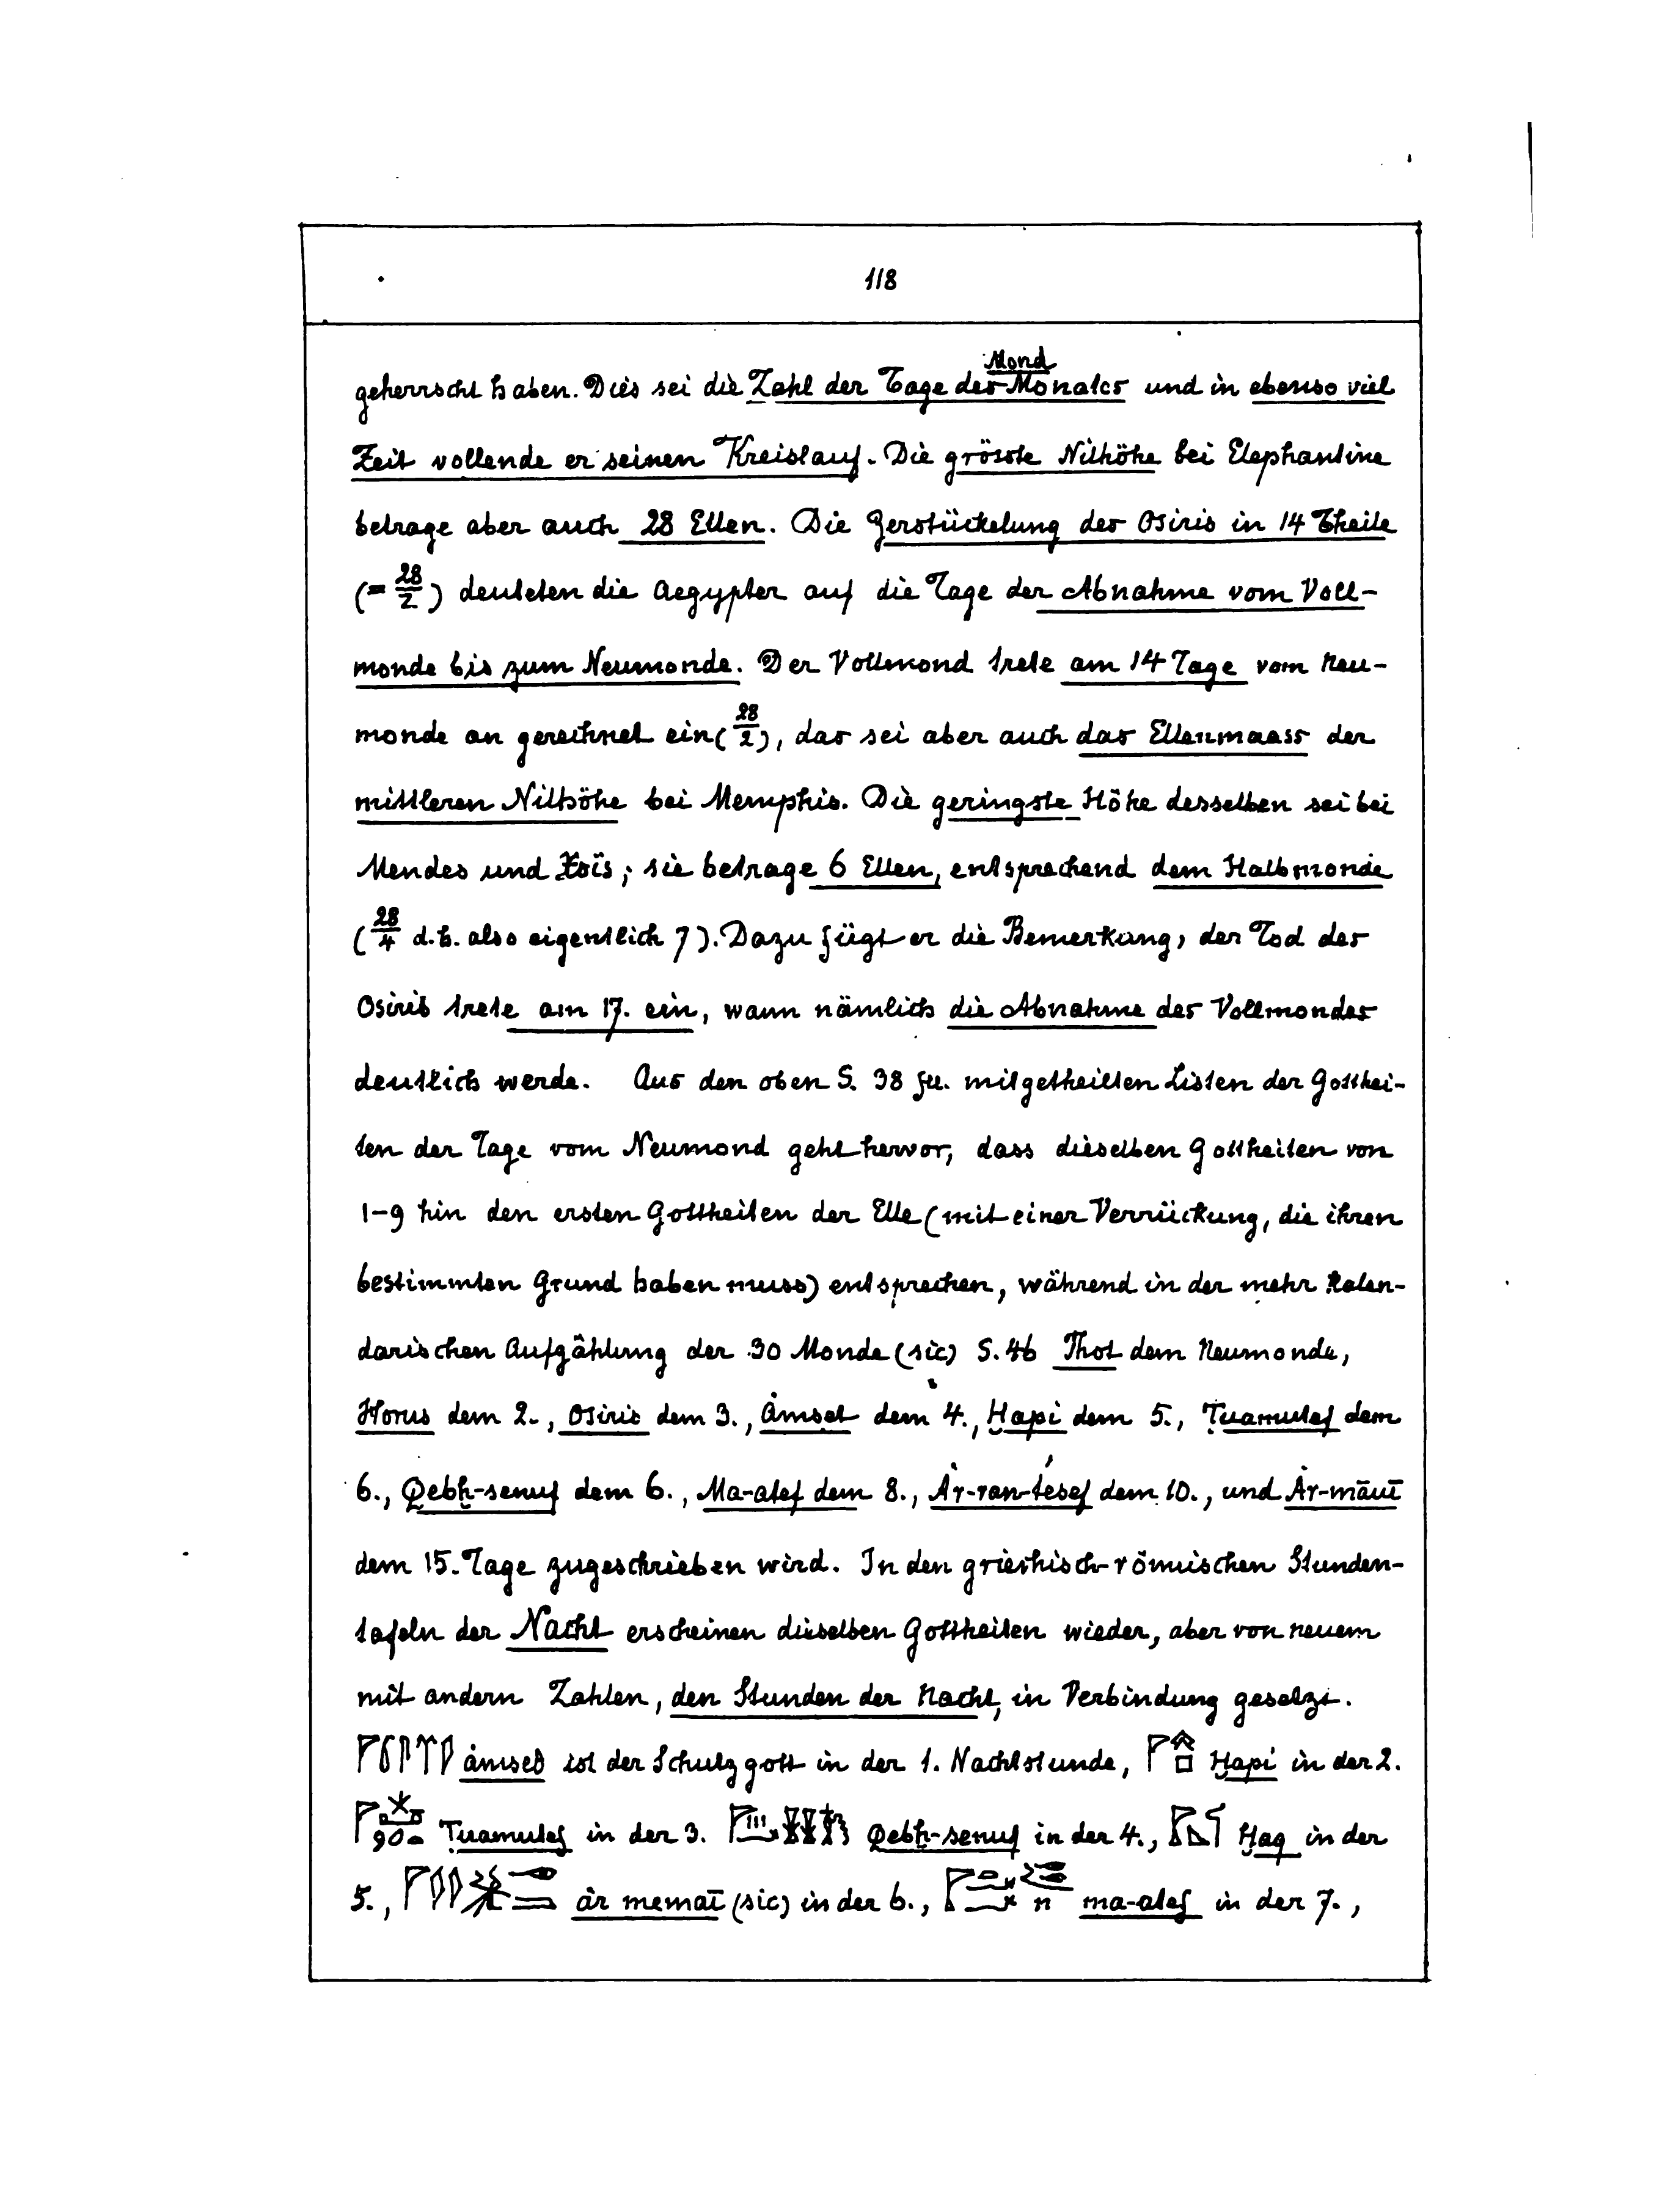 118
Mond
geherrscht haben. Dies sei die Zahl der Tage des Monates und in ebenso viel
Zeit vollende er seinen Kreislauf. Die grösste Nilhöhe bei Elephantine
betrage aber auch 28 Ellen. Die Zerstückelung des Osiris in 14 Theile
(= 28/2) deuteten die Aegypter auf die Tage der Abnahme vom Voll-
monde bis zum Neumonde. Der Vollmond trete am 14 Tage vom Neu-
monde an gerechnet ein (28/2), das sei aber auch das Ellenmaass der
mittleren Nilhöhe bei Memphis. Die geringste Höhe desselben sei bei
Mendes und Xoïs; sie betrage 6 Ellen, entsprechend dem Halbmonde
(28/4 d.h. also eigentlich 7). Dazu fügt er die Bemerkung, der Tod des
Osiris trete am 17. ein, wann nämlich die Abnahme des Vollmondes
deutlich werde. Aus den oben S. 38 fll. mitgetheilten Listen der Gotthei-
ten der Tage vom Neumond geht hervor, dass dieselben Gottheiten von
1-9 hin den ersten Gottheiten der Elle (mit einer Verrückung, die ihren
bestimmten Grund haben muss) entsprechen, während in der mehr kalen-
darischen Aufzählung der 30 Monde (sic) S. 46 Thot dem Neumonde,
Horus dem 2., Osiris dem 3., Ȧmset dem 4., Ḥapi dem 5., Ṭuamutef dem
6., Qebḥ-senuf dem 6., Ma-atef dem 8., Ȧr-ran-tésef dem 10., und Ȧr-māuī
dem 15. Tage zugeschrieben wird. In den griechisch-römischen Stunden-
tafeln der Nacht erscheinen dieselben Gottheiten wieder, aber von neuem
mit andern Zahlen, den Stunden der Nacht, in Verbindung gesetzt.
ȧmseθ ist der Schutzgott in der 1. Nachtstunde, Ḥapi in der 2.
Ṭuamutef in der 3. Qebḥ-senuf in der 4., Ḥaq in der
5., ȧr memaī (sic) in der 6., ma-atef in der 7.,